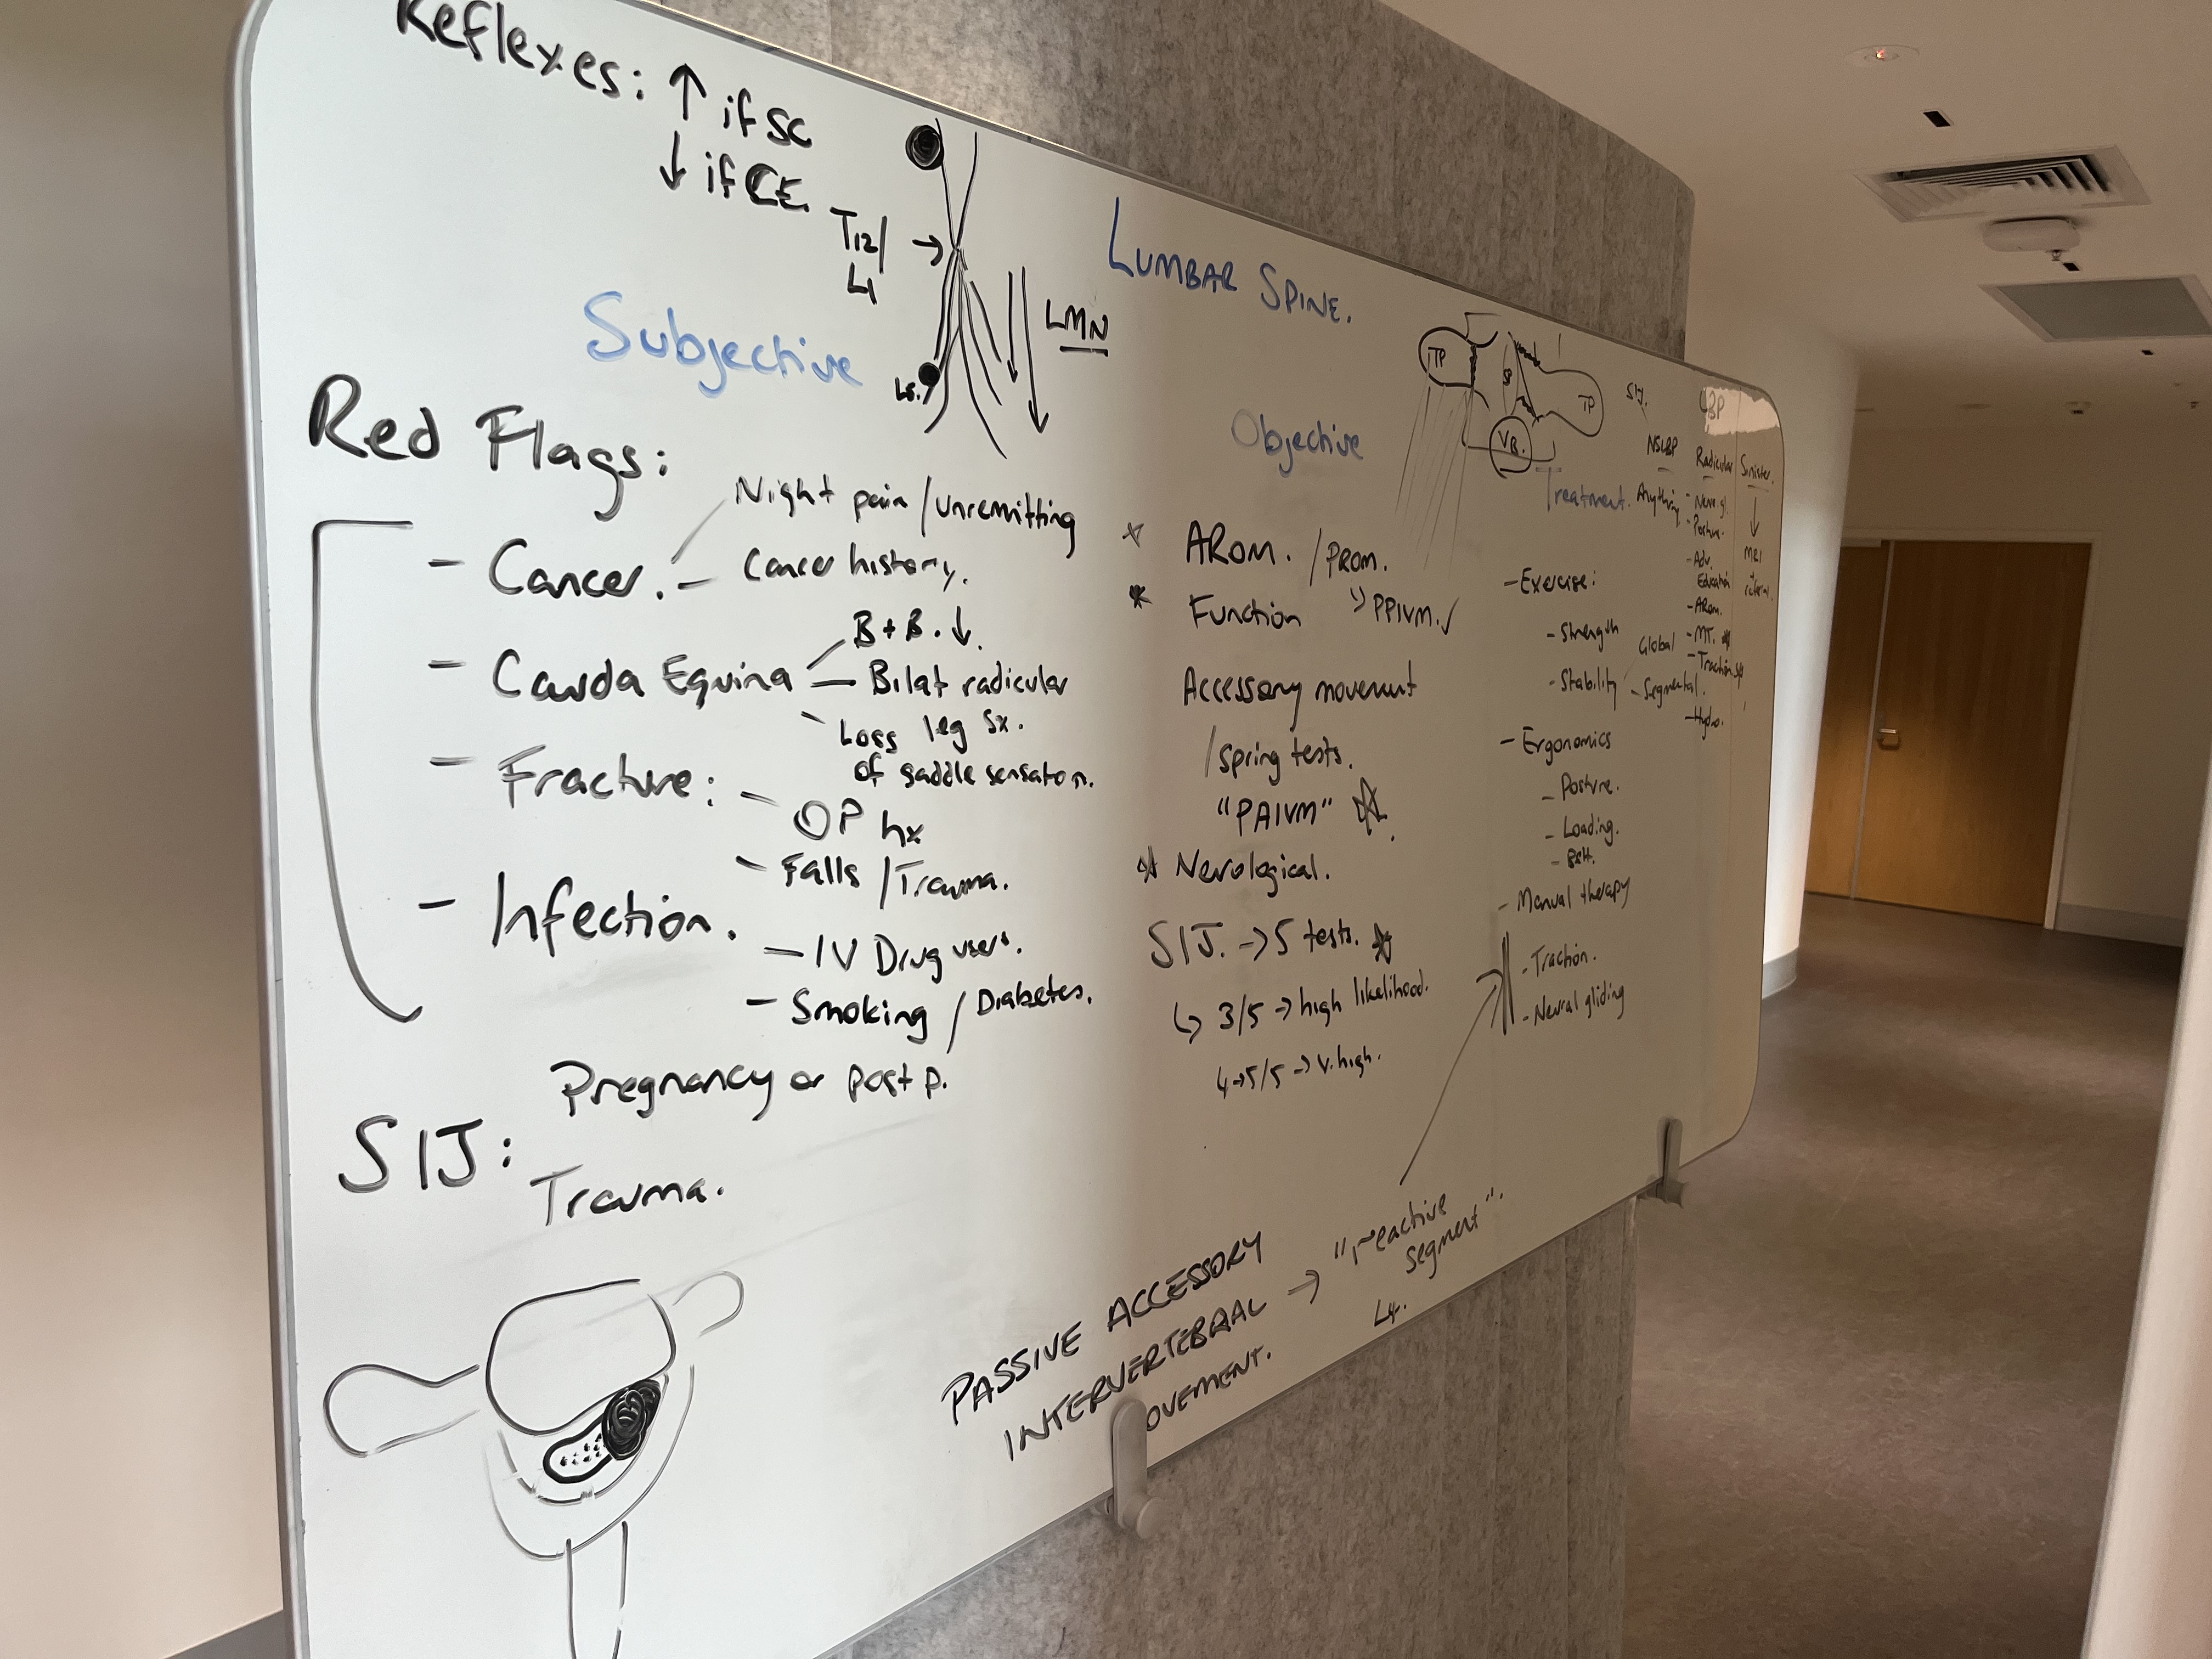 Reflexes: ↑ if SC
↓ if CE.
T12/
L1
LMN
L5.
LUMBAR SPINE.
Subjective
Red Flags:
- Cancer.
Night pain / unremitting
- Cancer history.
- Cauda Equina
B + B. ↓.
- Bilat radicular
leg sx.
- Loss of saddle sensation.
- Fracture:
- OP hx
- Falls / Trauma.
- Infection.
- IV Drug users.
- Smoking / Diabetes.
SIJ:
Pregnancy or post p.
Trauma.
TP
SP
TP
VB.
Objective
* AROM. / PROM.
* Function
PPIVM. ✓
Accessory movement
/ spring tests.
"PAIVM" ☆.
* Nerological.
SIJ. → 5 tests. ☆
↳ 3/5 → high likelihood.
4→5/5 → v. high.
PASSIVE ACCESSORY
INTERVERTEBRAL
OVEMENT.
→ "reactive
segment".
L4.
Treatment.
- Exercise:
- Strength
- Stability
Global
- Segmental.
- Ergonomics
- Posture.
- Loading.
- Manual therapy
- Traction.
- Neural gliding
SIJ.
LBP
NSLBP
Anything
Radicular
- Nerve gl.
- Posture.
- Adv.
Education
- AROM.
- MT. *
- Traction
- Hydro.
Sinister.
↓
MRI
+
referral.